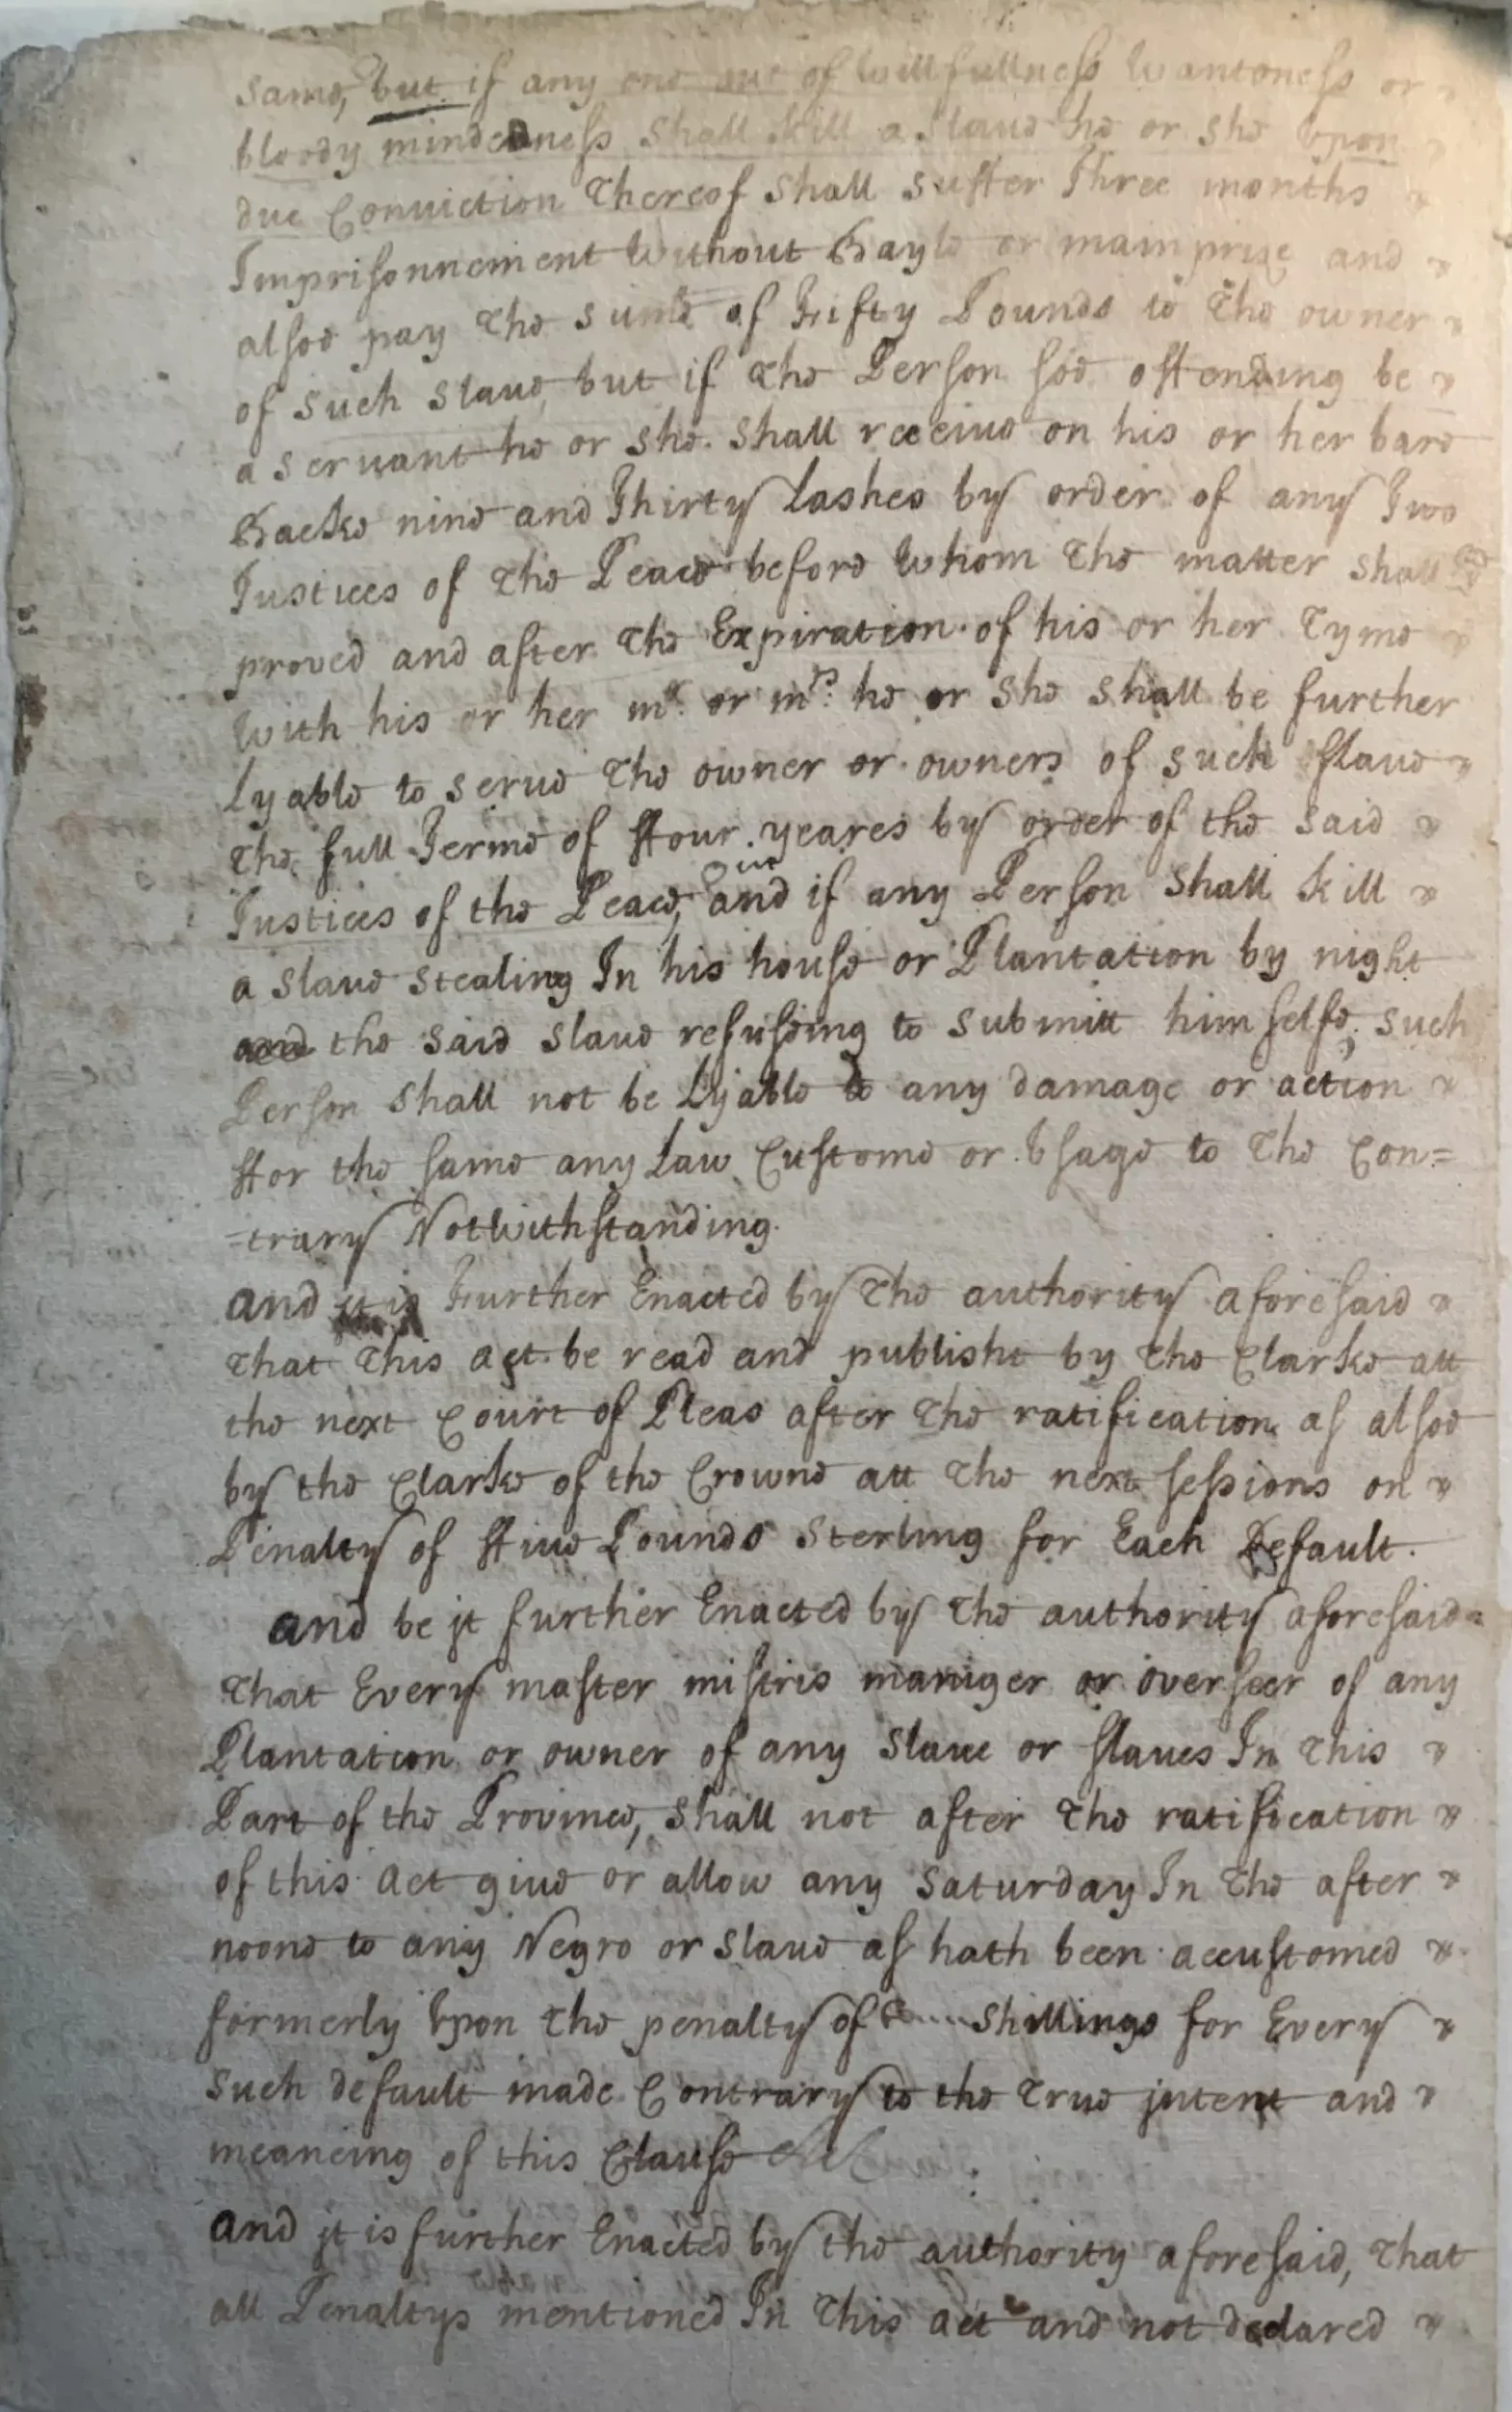 same, but if any one out of willfullness wantoness or
bloody mindedness shall kill a slave he or she upon
due Conviction thereof shall suffer Three months
Imprisonnement without Bayle or mainprize and
alsoe pay the sume of Fifty Pounds to the owner
of such slave, but if the Person soe offending be
a servant he or she shall receive on his or her bare
Backe nine and Thirty lashes by order of any Two
Justices of the Peace before whom the matter shall be
proved and after the Expiration of his or her Tyme
with his or her mr. or mrs: he or she shall be further
lyable to serve the owner or owners of such slave
the full Terme of ffour yeares by order of the said
Justices of the Peace, but and if any Person shall kill
a slave stealing In his house or Plantation by night
and the said slave refuseing to submitt himselfe, such
Person shall not be Lyable to any damage or action
ffor the same any Law Custome or Vsage to the Con=
=trary Notwithstanding.
and it is Further Enacted by the authority aforesaid
that this act be read and publisht by the Clarke att
the next Court of Pleas after the ratification as alsoe
by the Clarke of the Crowne att the next sessions on
Penalty of ffive Pounds Sterling for Each Default.
and be it further Enacted by the authority aforesaid
that Every master mistris maniger or overseer of any
Plantation or owner of any Slave or slaves In this
Part of the Province, shall not after the ratification
of this act give or allow any Saturday In the after
noone to any Negro or slave as hath been accustomed
formerly Upon the penalty of .... Shillings for Every
such default made Contrary to the True jntent and
meaneing of this Clause
and it is further Enacted by the authority aforesaid, that
all Penaltys mentioned In this act and not declared